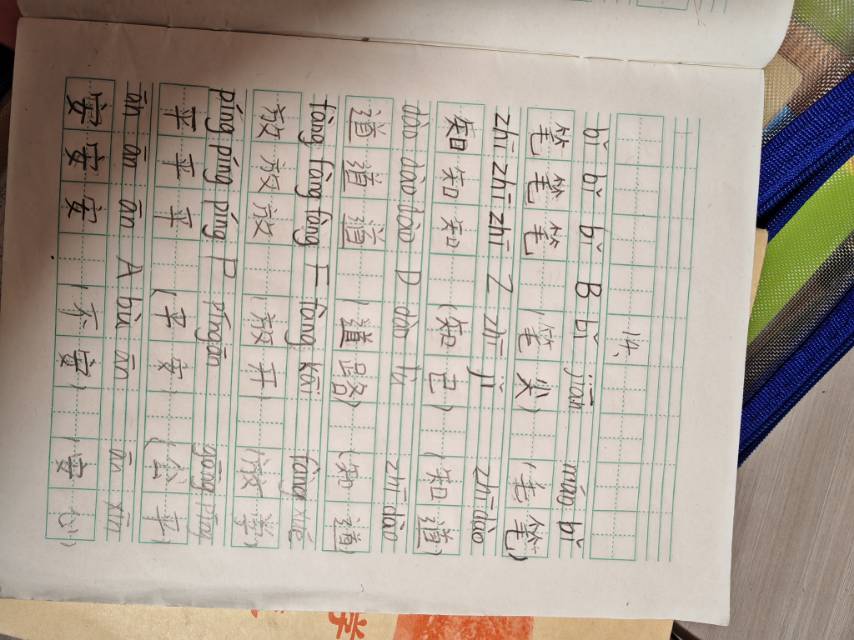 14、
bǐ bǐ bǐ B bǐ jiān máo bǐ
笔 笔 笔 (笔 尖) (毛 笔)
zhī zhī zhī Z zhī jǐ zhī dào
知 知 知 (知 己) (知 道)
dào dào dào D dào lù zhī dào
道 道 道 (道 路) (知 道)
fàng fàng fàng F fàng kāi fàng xué
放 放 放 (放 开) (放 学)
píng píng píng P píng ān gōng píng
平 平 平 (平 安) (公 平)
ān ān ān A bù ān ān xīn
安 安 安 (不 安) (安 心)